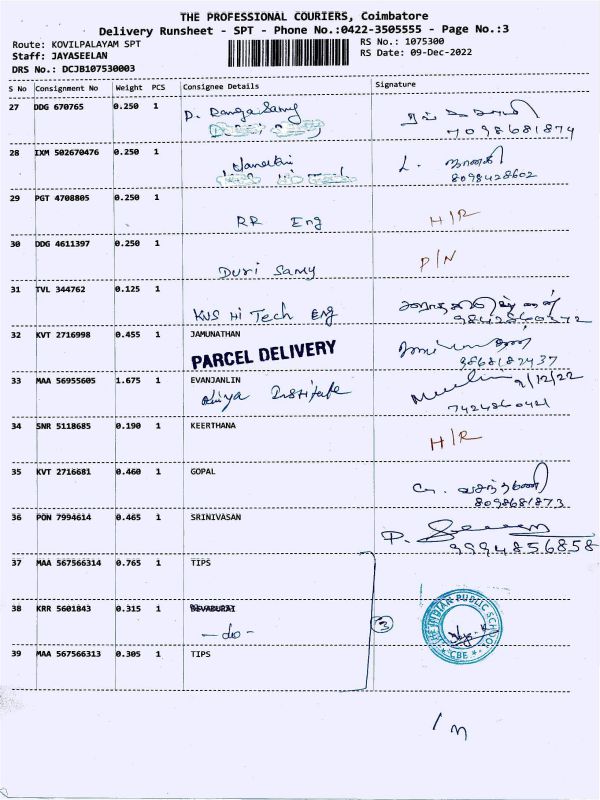 THE PROFESSIONAL COURIERS, Coimbatore
Delivery Runsheet - SPT - Phone No.:0422-3505555 - Page No.:3
Route: KOVILPALAYAM SPT
RS No.: 1075300
Staff: JAYASEELAN
RS Date: 09-Dec-2022
DRS No.: DCJB107530003
S No Consignment No Weight PCS Consignee Details Signature
27 DDG 670765 0.250 1 D. RangaSamy
7098681874
28 IXM 502670476 0.250 1
L. ஜானகி
8098428602
29 PGT 4708805 0.250 1
RR Eng H/R
30 DDG 4611397 0.250 1
Duri Samy P/N
31 TVL 344762 0.125 1
KVS Hi Tech Eng
9842860372
32 KVT 2716998 0.455 1 JAMUNATHAN
PARCEL DELIVERY
9868182437
33 MAA 56955605 1.675 1 EVANJANLIN
Institute 9/12/22
7424860421
34 SNR 5118685 0.190 1 KEERTHANA
H/R
35 KVT 2716681 0.460 1 GOPAL
8098681873
36 PON 7994614 0.465 1 SRINIVASAN
P.
9994856858
37 MAA 567566314 0.765 1 TIPS
38 KRR 5601843 0.315 1 DEVABURAI
-do-
3
THE INDIAN PUBLIC SCHOOL
* CBE *
39 MAA 567566313 0.305 1 TIPS